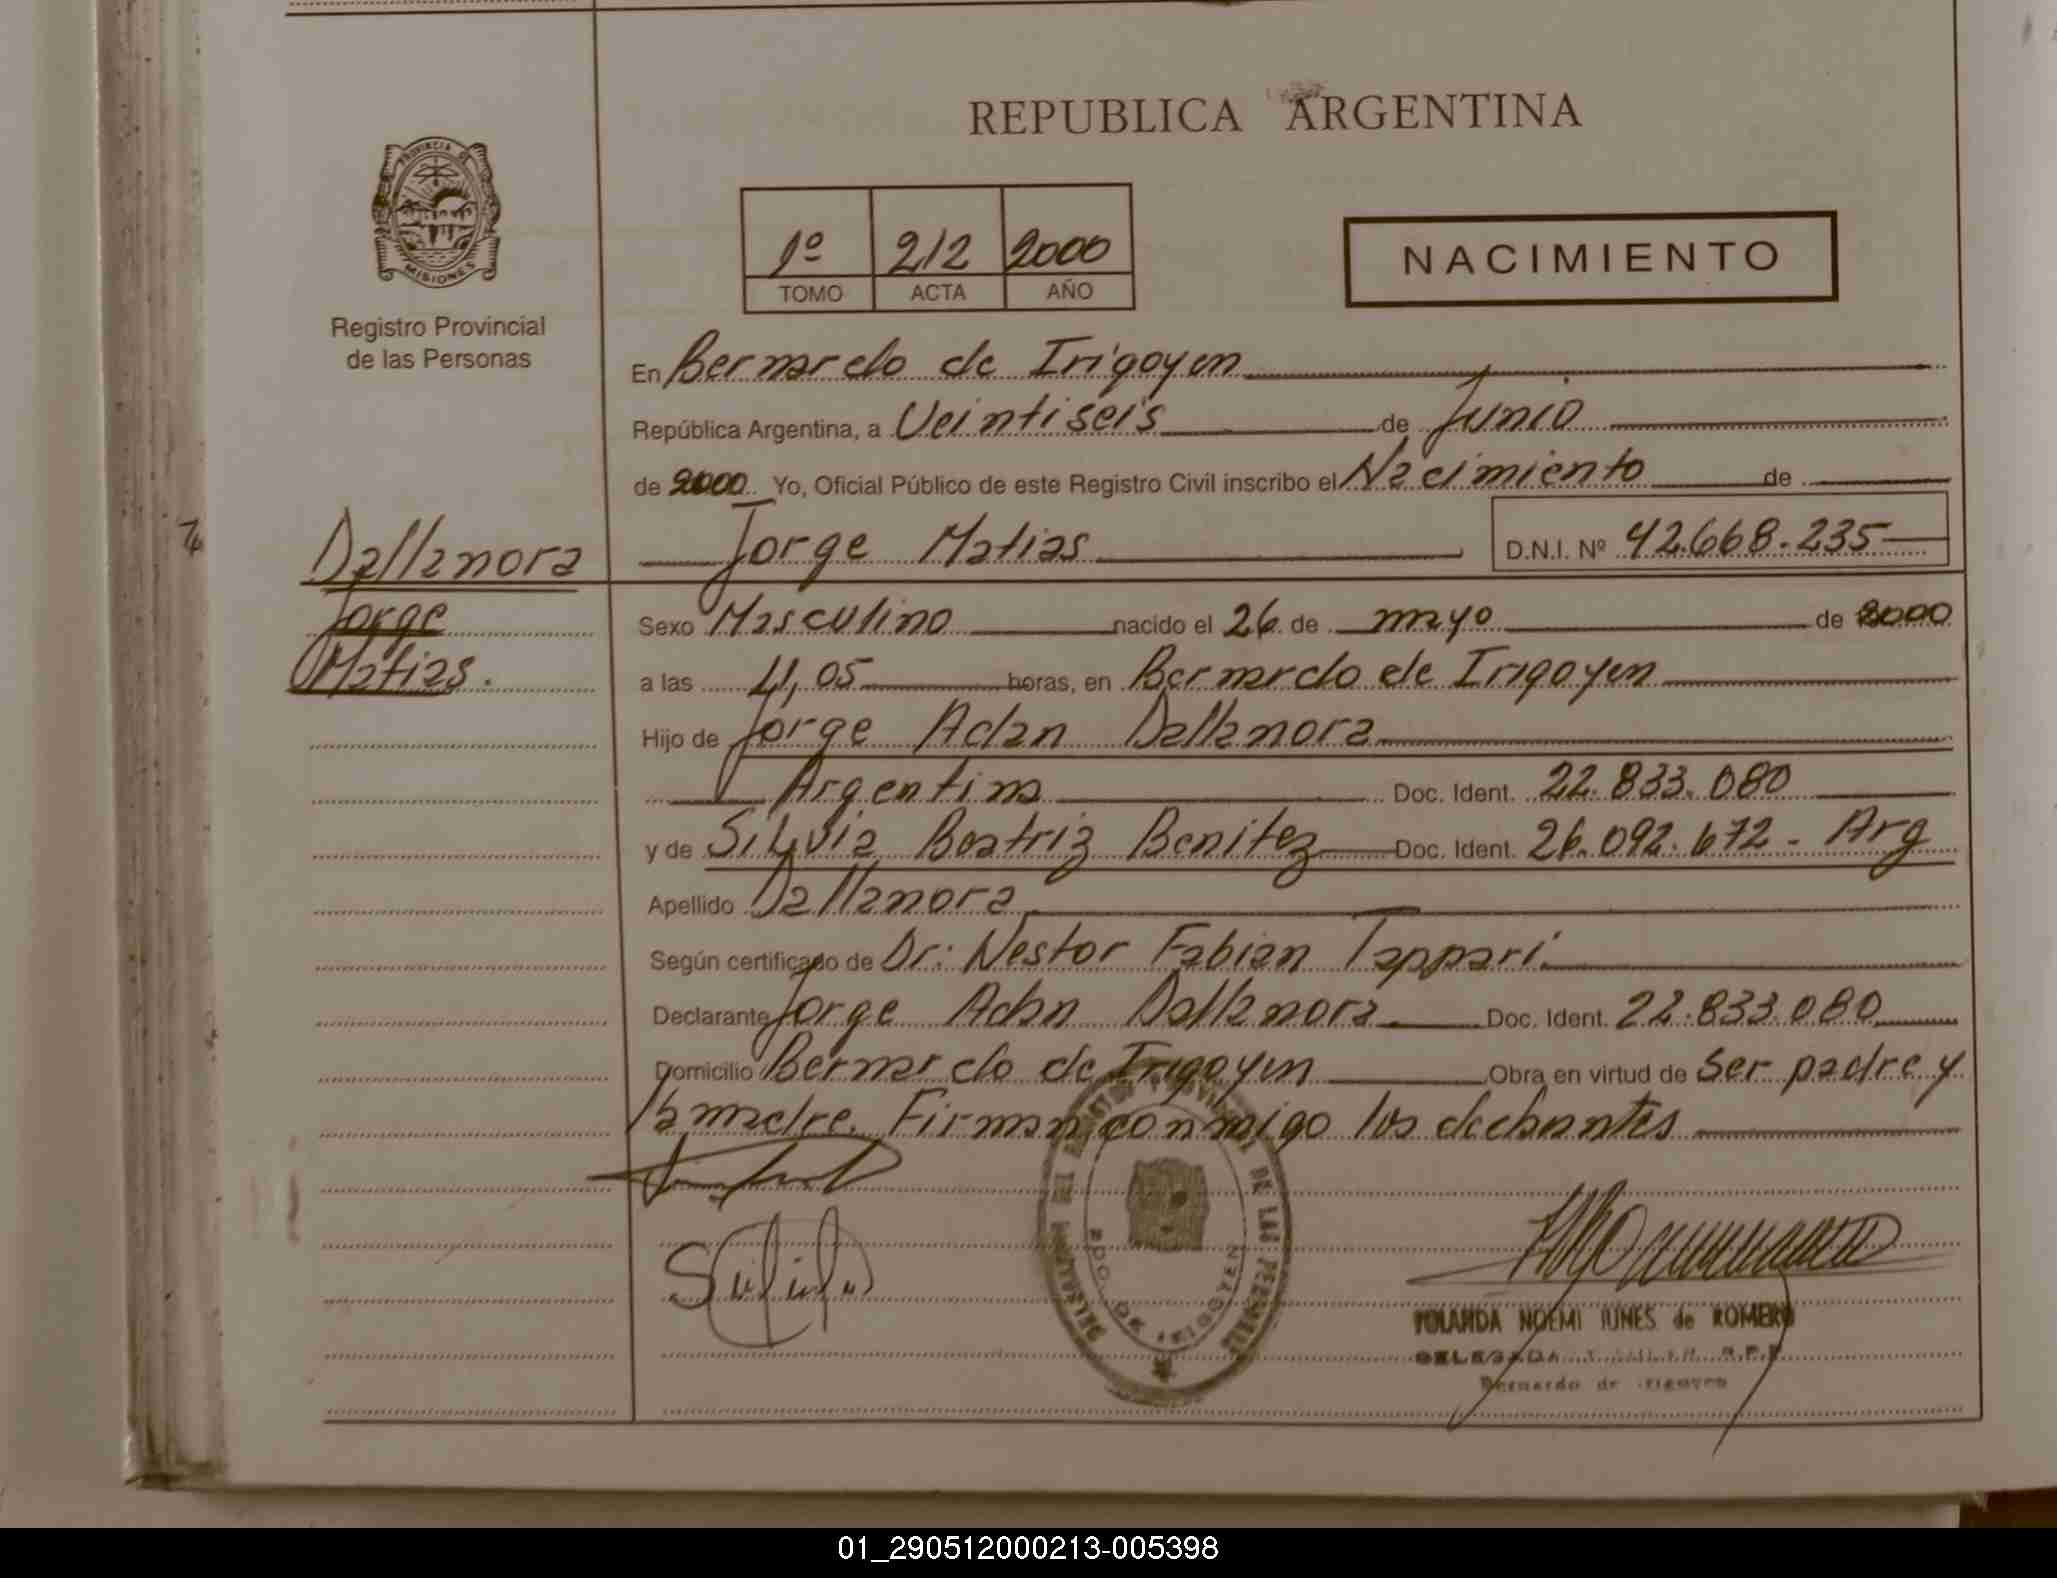 REPUBLICA ARGENTINA
PROVINCIA DE
MISIONES
Registro Provincial
de las Personas
1º 212 2000
TOMO ACTA AÑO
NACIMIENTO
En Bernardo de Irigoyen
República Argentina, a Veintiseis de Junio
de 2000 Yo, Oficial Público de este Registro Civil inscribo el Nacimiento de
Jorge Matias D.N.I. Nº 42.668.235
Dallanora
Jorge
Matias.
Sexo Masculino nacido el 26 de mayo de 2000
a las 11,05 horas, en Bernardo de Irigoyen
Hijo de Jorge Adan Dallanora
Argentina Doc. Ident. 22.833.080
y de Silvia Beatriz Benitez Doc. Ident. 26.092.672 - Arg
Apellido Dallanora
Según certificado de Dr: Nestor Fabian Tappari.
Declarante Jorge Adan Dallanora Doc. Ident. 22.833.080
Domicilio Bernardo de Irigoyen Obra en virtud de ser padre y
la madre. Firman conmigo los declarantes
DE LAS PERSONAS
DPO. DE IRIGOYEN
YOLANDA NOEMI IUNES de ROMERO
DELEGADA R.P.P.
Bernardo de Irigoyen
01_290512000213-005398